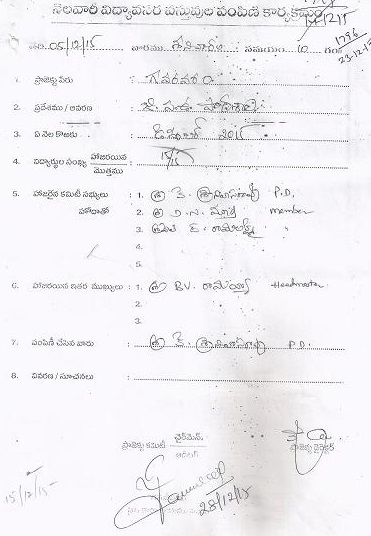 నెలవారీ విద్యావసర వస్తువుల పంపిణీ కార్యక్రమం
1796
23-12-15
తేది. 05/12/15 వారము శనివారం సమయం 10 గంట
1. ప్రాజెక్టు పేరు : గవరవరం
2. ప్రదేశము / ఆవరణ :
3. ఏ నెల కొఱకు : డిసెంబర్ 2015
4. విద్యార్థుల సంఖ్య హాజరయిన / మొత్తము : 15/15
5. హాజరైన కమిటీ సభ్యులు హోదాతో : 1. శ్రీ కె. శ్రీనివాసరావు P.D.
2. శ్రీ D.N. మూర్తి member
3. E. రామలక్ష్మి "
4.
5.
6. హాజరయిన ఇతర ముఖ్యులు : 1. శ్రీ B.V. రామయ్య Headmaster
2.
3.
7. పంపిణీ చేసిన వారు : శ్రీ కె. శ్రీనివాసరావు P.D.
8. వివరణ / సూచనలు :
ప్రాజెక్టు కమిటీ ఛైర్మెన్ ప్రాజెక్టు డైరెక్టర్
15/12/15
28/12/15